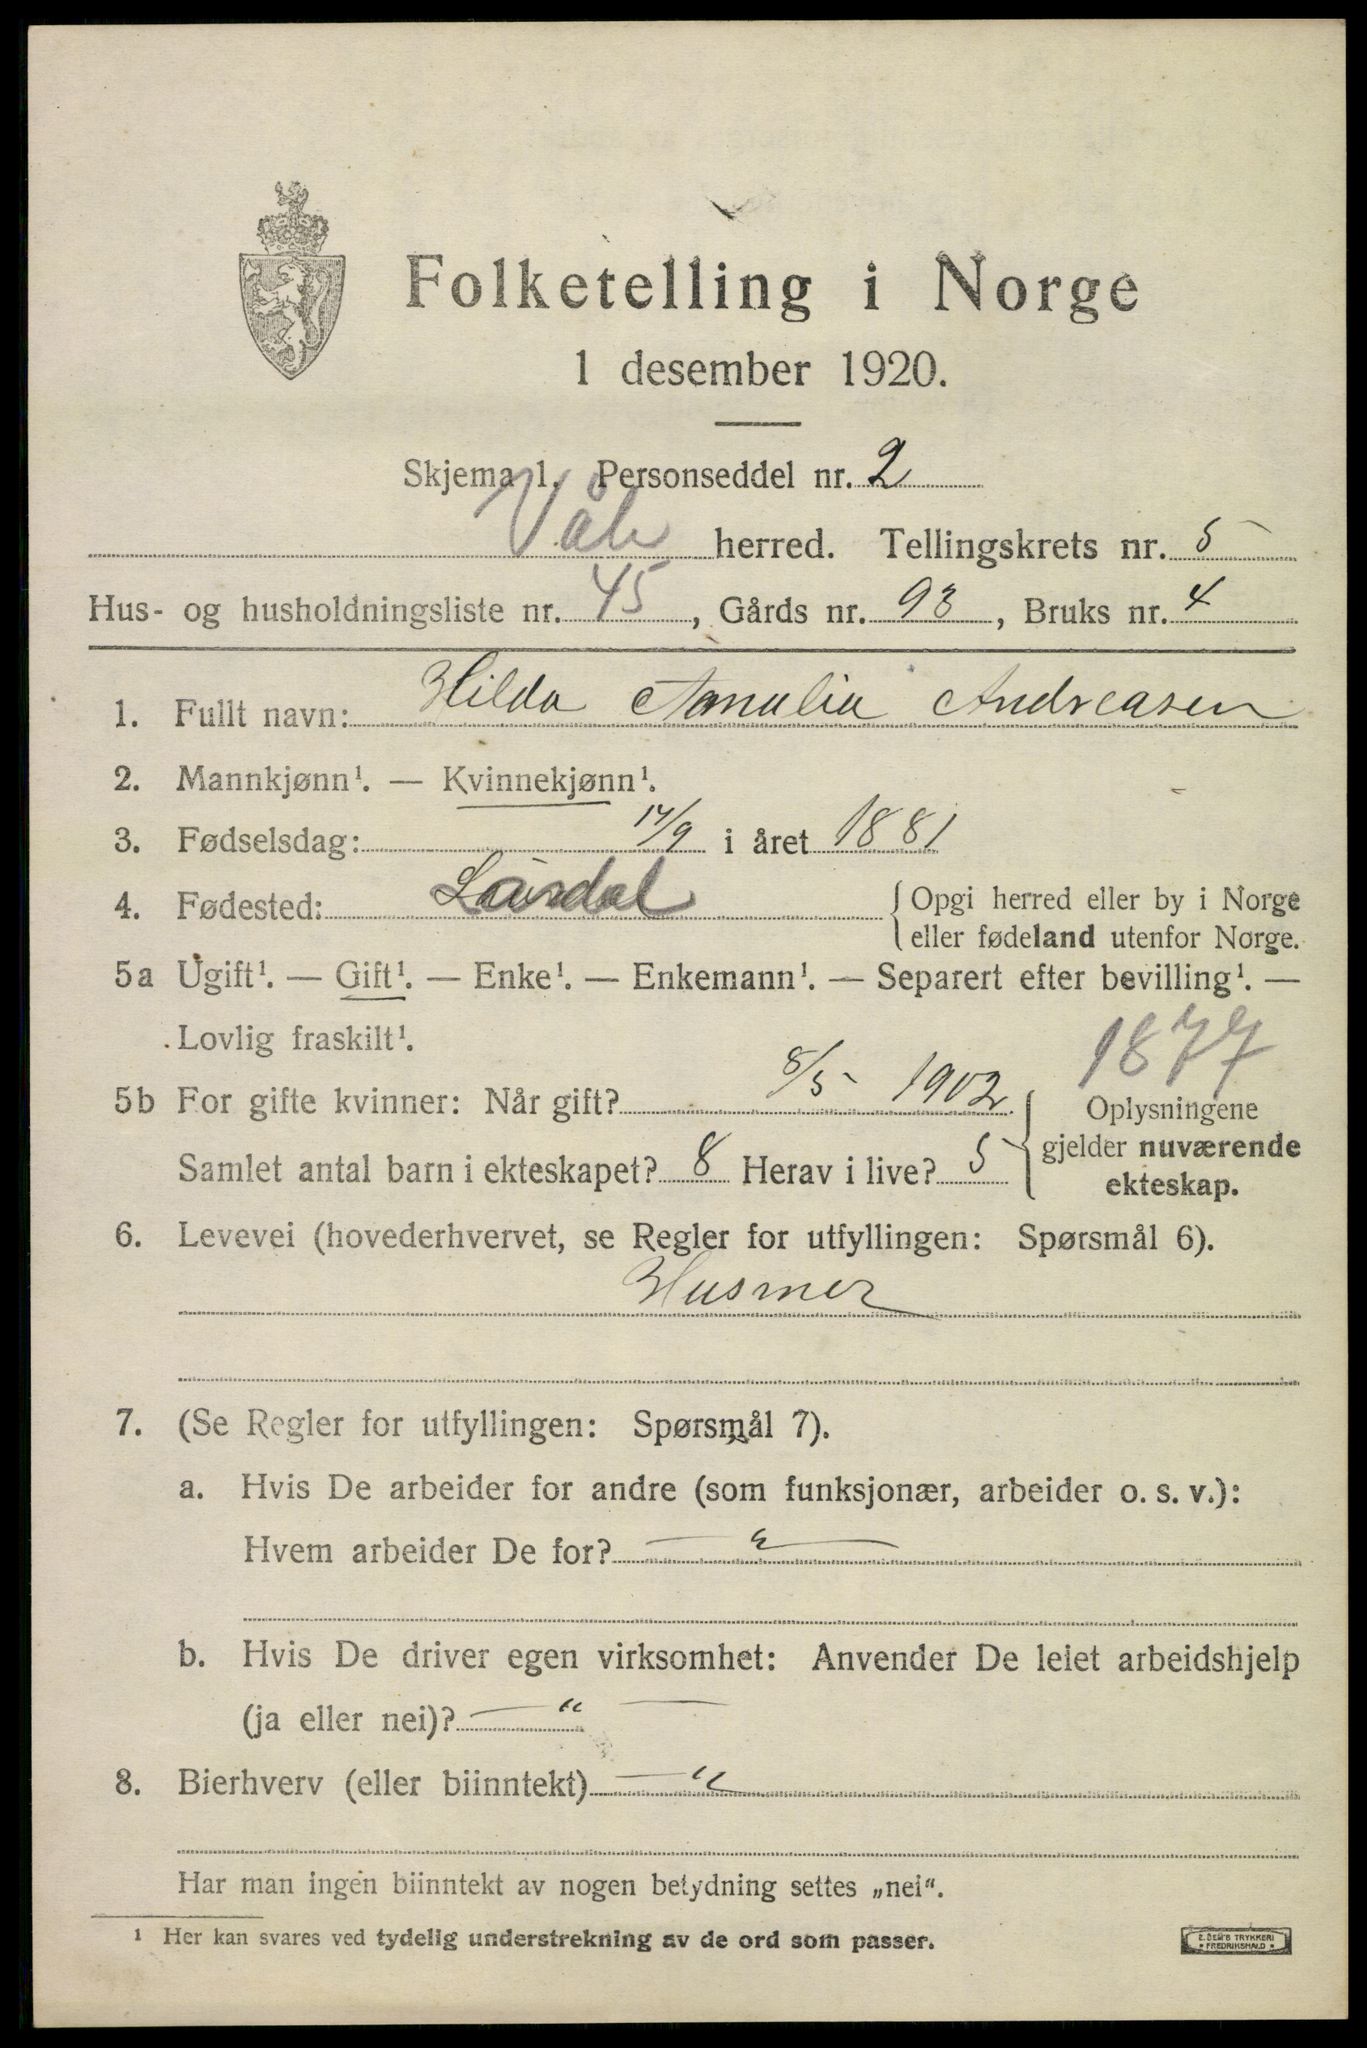 Folketelling i Norge
1 desember 1920.
Skjema 1. Personseddel nr. 2
Våle herred. Tellingskrets nr. 5
Hus- og husholdningsliste nr. 45, Gårds nr. 93, Bruks nr. 4
1. Fullt navn: Hilda Amalia Andreasen
2. Mannkjønn¹. — Kvinnekjønn¹.
3. Fødselsdag: 14/9 i året 1881
4. Fødested: Laurdal {Opgi herred eller by i Norge
eller fødeland utenfor Norge.
5a Ugift¹. — Gift¹. — Enke¹. — Enkemann¹. — Separert efter bevilling¹. —
Lovlig fraskilt¹.
1877
5b For gifte kvinner: Når gift? 8/5 1902 Oplysningene
gjelder nuværende
ekteskap.
Samlet antal barn i ekteskapet? 8 Herav i live? 5
6. Levevei (hovederhvervet, se Regler for utfyllingen: Spørsmål 6).
Husmor
7. (Se Regler for utfyllingen: Spørsmål 7).
a. Hvis De arbeider for andre (som funksjonær, arbeider o. s. v.):
Hvem arbeider De for? — „ —
b. Hvis De driver egen virksomhet: Anvender De leiet arbeidshjelp
(ja eller nei)? — „ —
8. Bierhverv (eller biinntekt) — „
Har man ingen biinntekt av nogen betydning settes „nei".
¹ Her kan svares ved tydelig understrekning av de ord som passer.
E. SEM'S TRYKKERI
FREDRIKSHALD